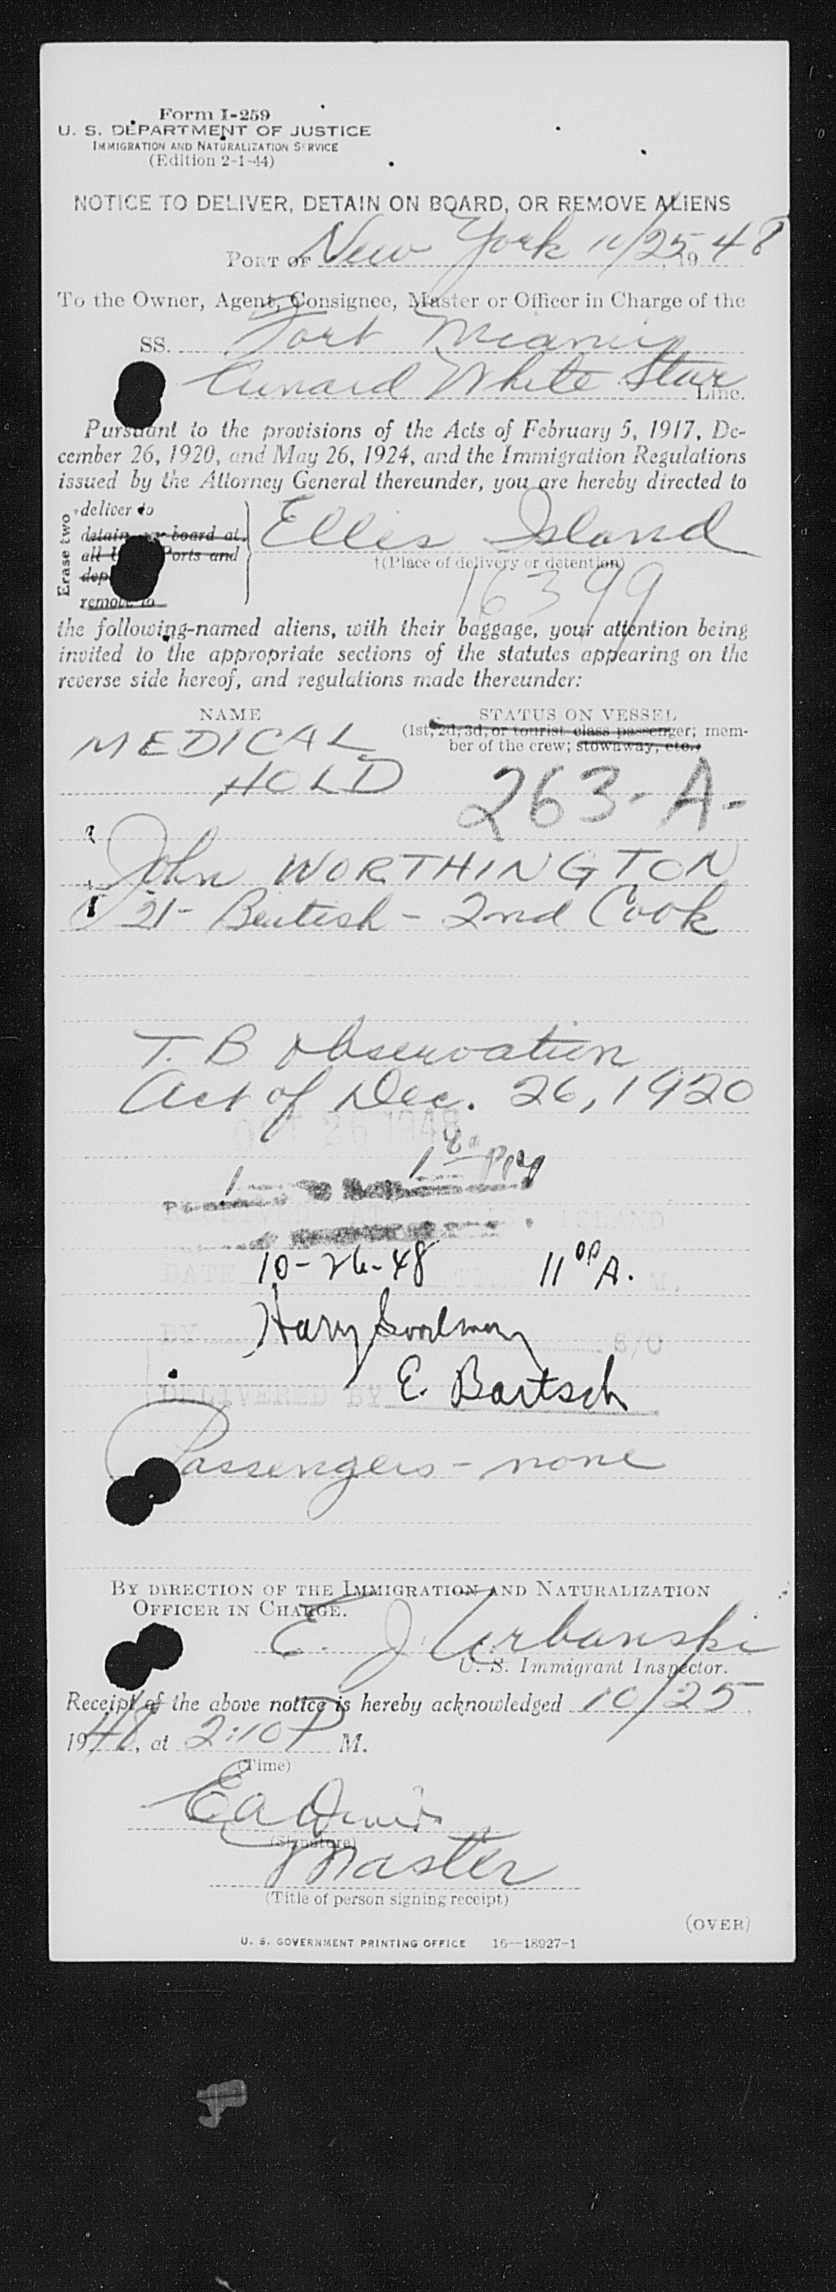 Form I-259
U. S. DEPARTMENT OF JUSTICE
IMMIGRATION AND NATURALIZATION SERVICE
(Edition 2-1-44)
NOTICE TO DELIVER, DETAIN ON BOARD, OR REMOVE ALIENS
PORT OF New York 10/25, 1948
To the Owner, Agent, Consignee, Master or Officer in Charge of the
SS. Fort
Cunard White Star Line.
Pursuant to the provisions of the Acts of February 5, 1917, De-
cember 26, 1920, and May 26, 1924, and the Immigration Regulations
issued by the Attorney General thereunder, you are hereby directed to
Erase two
deliver to
detain on board at
all Ports and
dep
remove to
Ellis Island
†(Place of delivery or detention)
16399
the following-named aliens, with their baggage, your attention being
invited to the appropriate sections of the statutes appearing on the
reverse side hereof, and regulations made thereunder:
NAME STATUS ON VESSEL
(1st, 2d, 3d, or tourist class passenger; mem-
ber of the crew; stowaway, etc.)
MEDICAL
HOLD
263-A-
John WORTHINGTON
21- British - 2nd Cook
T. B Observation
Act of Dec. 26, 1920
OCT 26 1948
1 PM
ISLAND
DATE 10-26-48 11 00 A. M.
BY Harry Goodman S/O
DELIVERED BY E. Bartsch
Passengers - none
BY DIRECTION OF THE IMMIGRATION AND NATURALIZATION
OFFICER IN CHARGE.
E. J. Urbanski
U. S. Immigrant Inspector.
Receipt of the above notice is hereby acknowledged 10/25,
1948, at 2:10 P M.
(Time)
(Signature)
Master
(Title of person signing receipt)
(OVER)
U. S. GOVERNMENT PRINTING OFFICE 16—18927-1